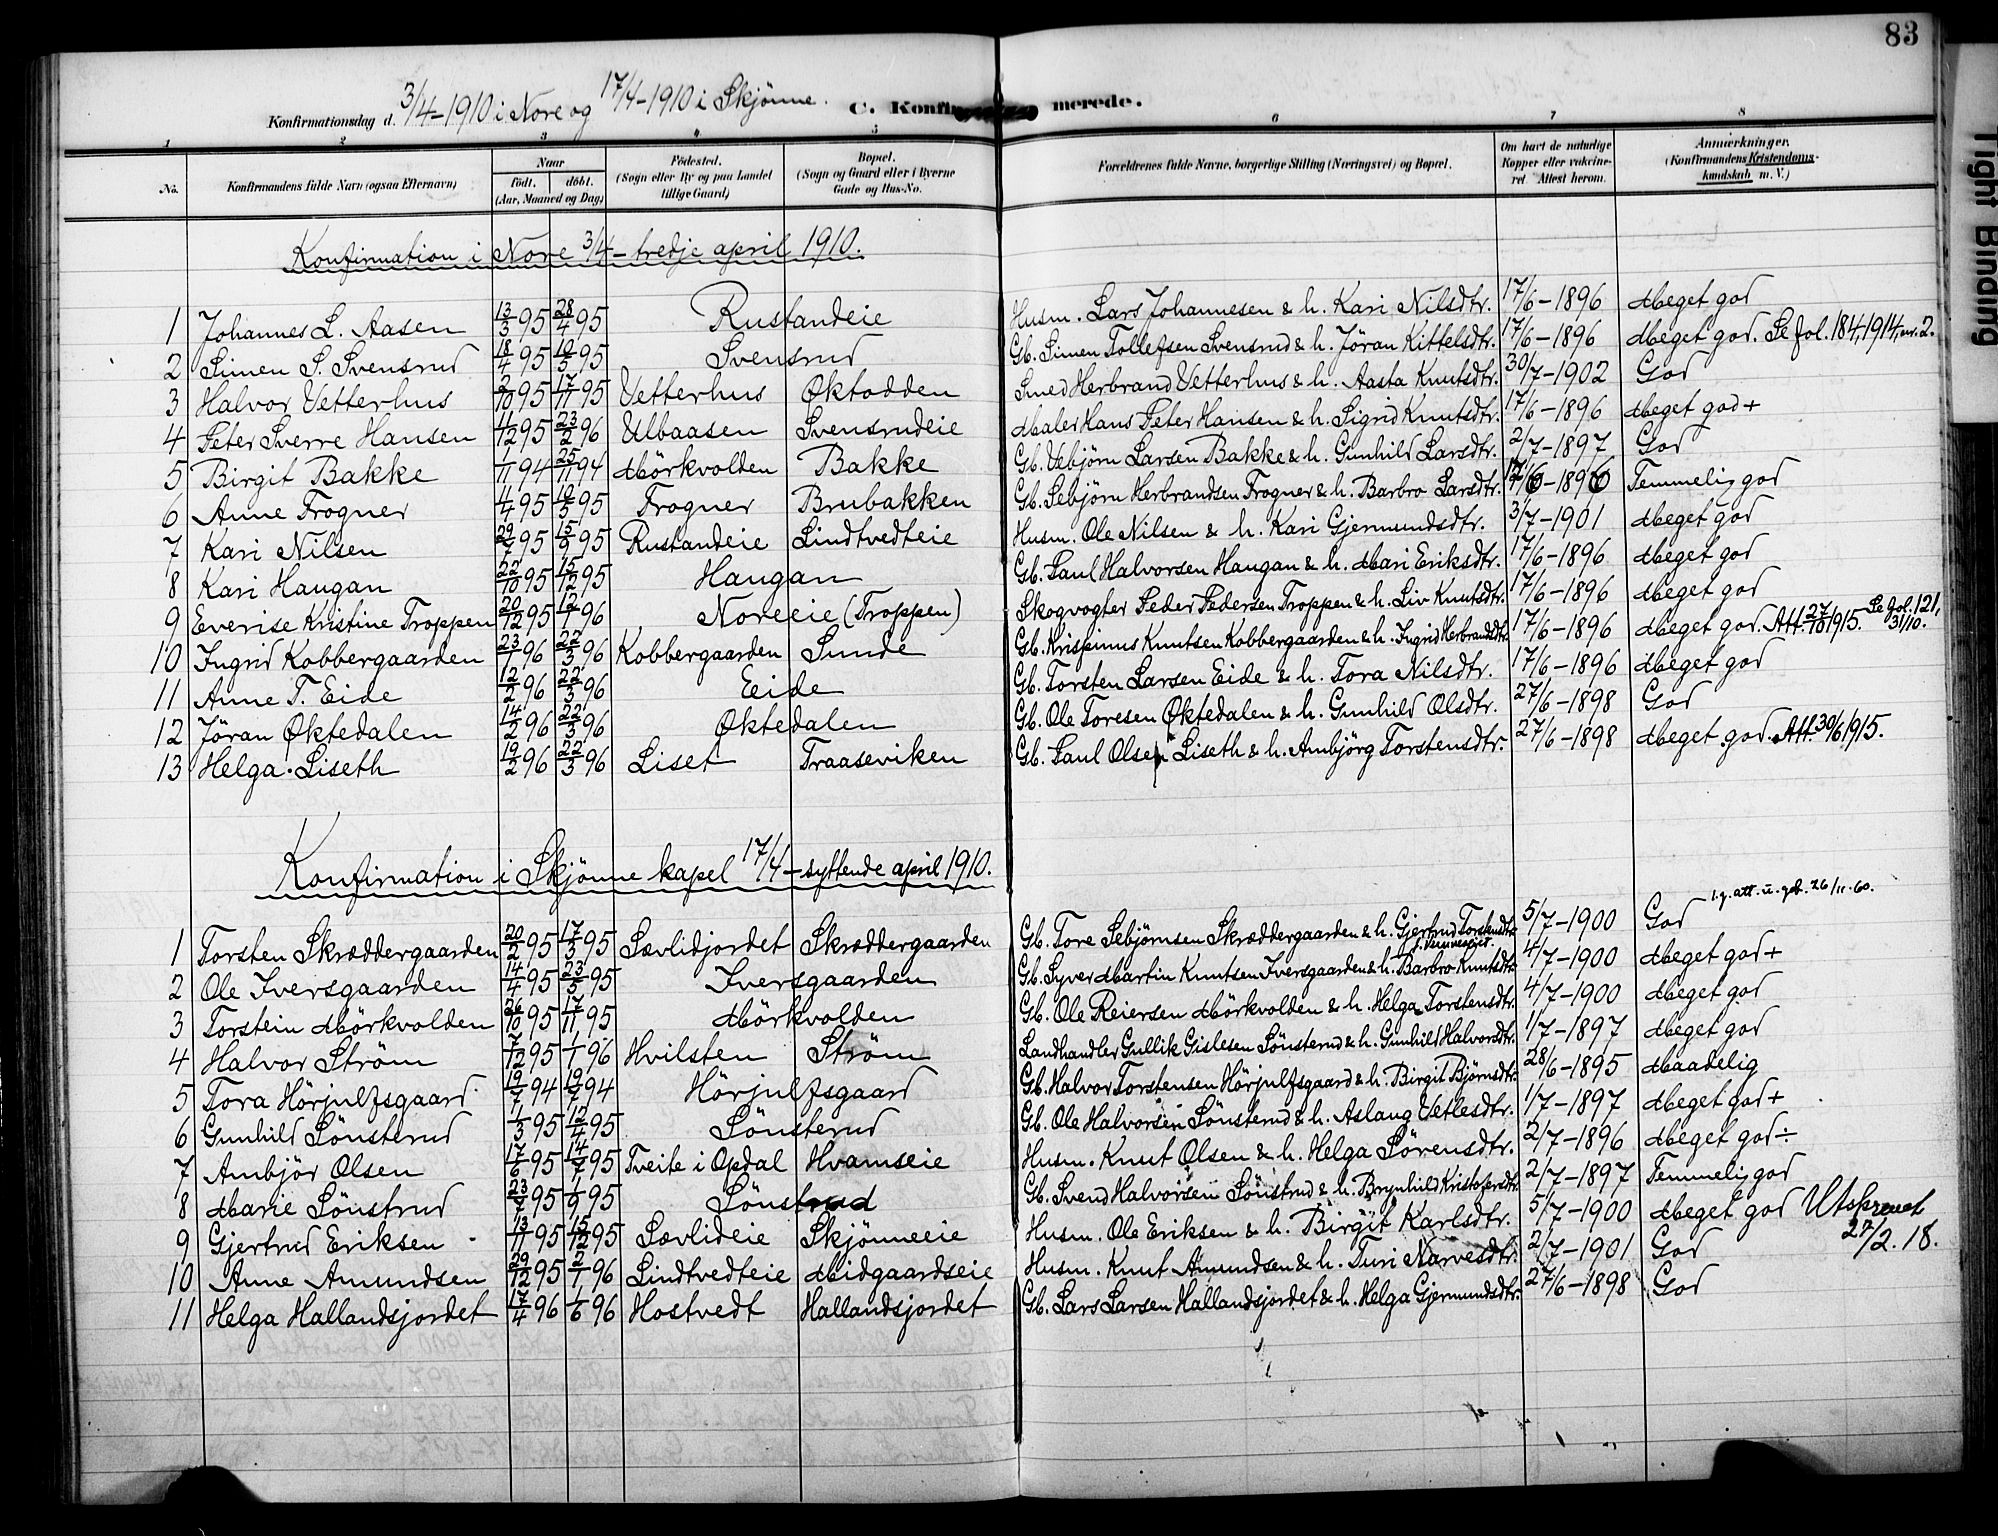 83
Konfirmationsdag d. 3/4-1910 i Nore og 17/4-1910 i Skjönne. C. Konfirmerede.
1 2 3 4 5 6 7 8
No. Konfirmandens fulde Navn (ogsaa Efternavn) Naar født. døbt. (Aar, Maaned og Dag) Fødested. (Sogn eller By og paa Landet tillige Gaard) Bopæl. (Sogn og Gaard eller i Byerne Gade og Hus-No. Forældrenes fulde Navne, borgerlige Stilling (Næringsvei) og Bopæl. Om havt de naturlige Kopper eller vakcineret. Attest herom. Anmærkninger. (Konfirmandens Kristendomskundskab m. V.)
Konfirmation i Nore 3/4 - tredje april 1910.
1 Johannes L. Aasen 13/3 95 28/4 95 Rustandeie Husm. Lars Johannesen & h. Kari Nilsdtr. 17/6-1896 Meget god
2 Simen S. Svensrud 18/4 95 19/5 95 Svensrud Gb. Simen Tollefsen Svensrud & h. Jöran Kittelsdtr. 17/6-1896 Meget god. Se fol. 184, 1914, nr. 2.
3 Halvor Vetterhus 2/10 95 17/11 95 Vetterhus Øktodden Smed Herbrand Vetterhus & h. Aasta Knutsdtr. 30/7-1902 God
4 Peter Sverre Hansen 4/12 95 23/2 96 Ulbaasen Svensrudeie Maler Hans Peter Hansen & h. Sigrid Knutsdtr. 17/6-1896 Meget god+
5 Birgit Bakke 1/11 94 25/11 94 Mörkvolden Bakke Gb. Vebjörn Larsen Bakke & h. Gunhild Larsdtr. 2/7-1897 God
6 Anne Frogner 4/4 95 19/5 95 Frogner Brubakken Gb. Sebjörn Herbrandsen Frogner & h. Barbro Larsdtr. 17/6-1896 Temmelig god
7 Kari Nilsen 29/7 95 15/9 95 Rustandeie Lindtvedteie Husm. Ole Nilsen & h. Kari Gjermundsdtr. 3/7-1901 Meget god
8 Kari Haugan 22/10 95 15/12 95 Haugan Gb. Paul Halvorsen Haugan & h. Mari Eriksdtr. 17/6-1896 Meget god
9 Everise Kristine Troppen 20/12 95 12/1 96 Noreeie (Troppen) Skogvogter Peder Pedersen Troppen & h. Liv Knutsdtr. 17/6-1896 Meget god
10 Ingrid Kobbergaarden 23/1 96 22/3 96 Kobbergaarden Sunde Gb. Krispinus Knutsen Kobbergaarden & h. Ingrid Herbrandsdtr. 17/6-1896 Meget god. Att. 27/10 1915. Se fol. 121, 31/10.
11 Anne T. Eide 12/2 96 22/3 96 Eide Gb. Torsten Larsen Eide & h. Tora Nilsdtr. 17/6-1896 Meget god
12 Jöran Øktedalen 14/2 96 22/3 96 Øktedalen Gb. Ole Toresen Øktedalen & h. Gunhild Olsdtr. 27/6-1898 God
13 Helga Liseth 19/2 96 22/3 96 Liset Traaseviken Gb. Paul Olsen Liseth & h. Ambjörg Torstensdtr. 27/6-1898 Meget god. Att. 30/6 1915.
Konfirmation i Skjönne kapel 17/4 - syttende april 1910.
1 Torsten Skræddergaarden 20/2 95 17/3 95 Sævlidjordet Skræddergaarden Gb. Tore Sebjörnsen Skræddergaarden & h. Gjertrud Torstensdtr. 5/7-1900 God att. u. geb. 26/11-60.
2 Ole Iversgaarden 14/4 95 23/5 95 Iversgaarden Gb. Syver Martin Knutsen Iversgaarden & h. Barbro Knutsdtr. 4/7-1900 Meget god+
3 Torstein Mörkvolden 26/10 95 17/11 95 Mörkvolden Gb. Ole Reiersen Mörkvolden & h. Helga Torstensdtr. 4/7-1900 Meget god
4 Halvor Ström 7/12 95 1/1 96 Hvilsten Strøm Landhandler Gullik Gislesen Sönsterud & h. Gunhild Halvorsdtr. 1/7-1897 Meget god
5 Tora Hörjulfsgaard 19/7 94 19/7 94 Hörjulfsgaard Gb. Halvor Torstensen Hörjulfsgaard & h. Birgit Björnsdtr. 28/6-1895 Maadelig
6 Gunhild Sönsterud 1/3 95 12/4 95 Sönsterud Gb. Ole Halvorsen Sönsterud & h. Aslaug Vetlesdtr. 1/7-1897 Meget god+
7 Ambjör Olsen 17/6 95 14/7 95 Tveite i Opdal Hvamseie Husm. Knut Olsen & h. Helga Sörensdtr. 2/7-1896 Meget god÷
8 Marie Sönstrud 23/7 95 1/9 95 Sönstrud Gb. Svend Halvorsen Sönstrud & h. Brynhild Kristofersdtr. 2/7-1897 Temmelig god
9 Gjertrud Eriksen 13/11 95 15/12 95 Sævlideie Skjönneeie Husm. Ole Eriksen & h. Birgit Karlsdtr. 5/7-1900 Meget god Utskrevet 27/2. 18.
10 Anne Amundsen 29/12 95 2/1 96 Lindtvedteie Midgaardseie Husm. Knut Amundsen & h. Turi Narvesdtr. 2/7-1901 God
11 Helga Hallandsjordet 17/4 96 1/6 96 Hostvedt Hallandsjordet Gb. Lars Larsen Hallandsjordet & h. Helga Gjermundsdtr. 27/6-1898 God
Tight Binding